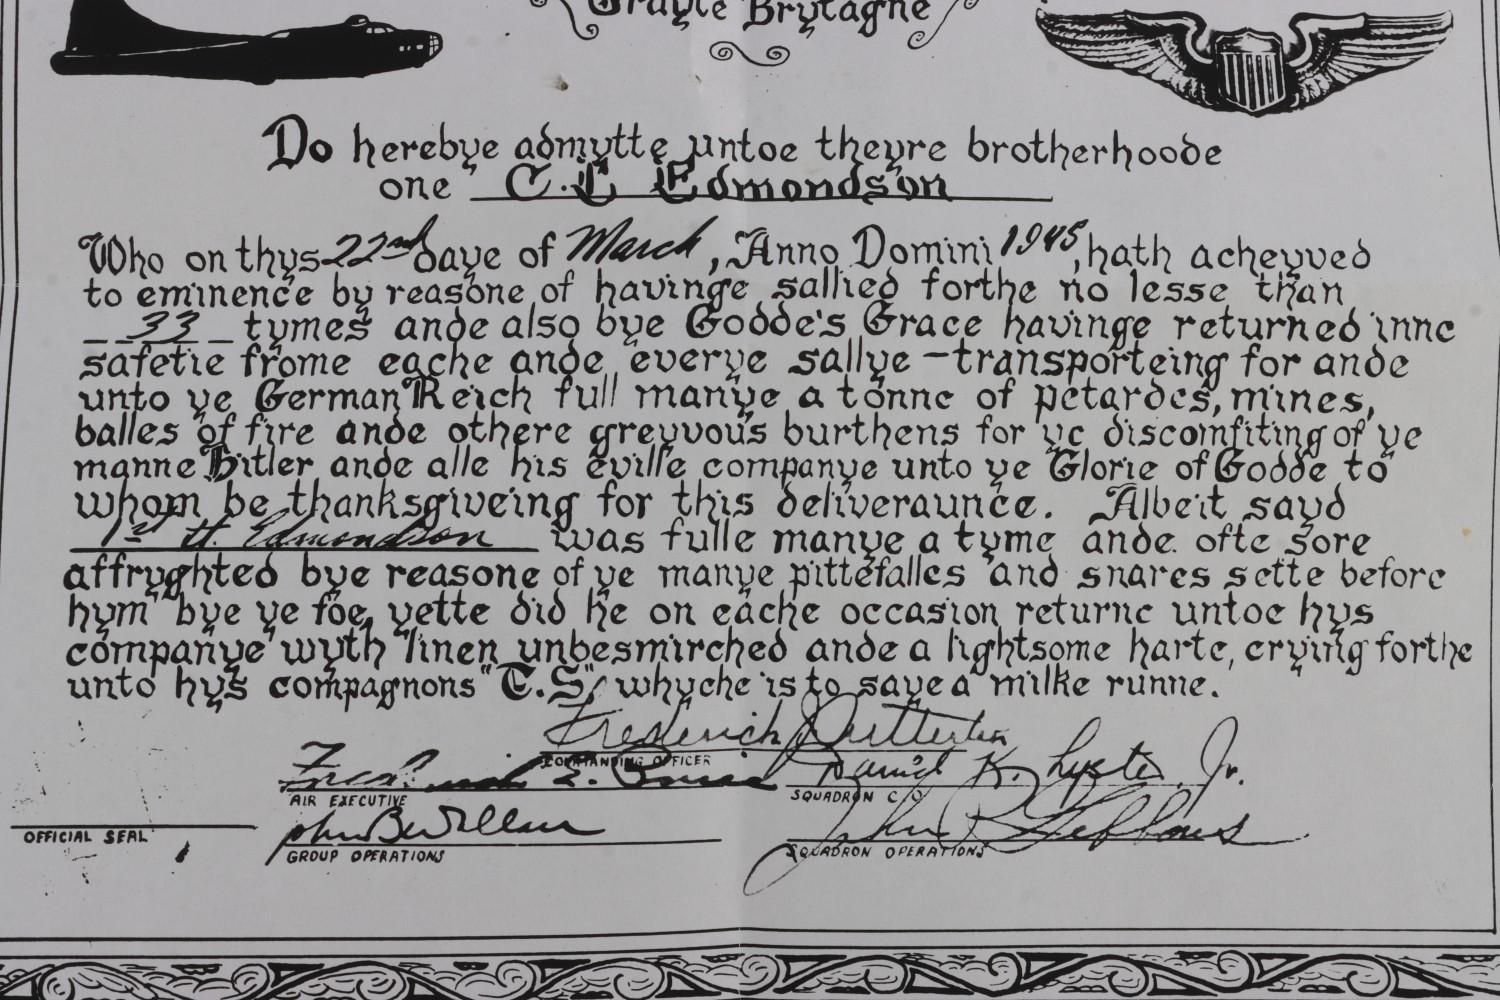 Grayte Brytagne
Do herebye admytte untoe theyre brotherhoode
one C.L Edmondson
Who on thys 22nd daye of March, Anno Domini 1945, hath acheyved
to eminence by reasone of havinge sallied forthe no lesse than
33 tymes ande also bye Godde's Grace havinge returned inne
safetie frome eache ande everye sallye - transporteing for ande
unto ye German Reich full manye a tonne of petardes, mines,
balles of fire ande othere greyvous burthens for ye discomfiting of ye
manne Hitler ande alle his eville companye unto ye Glorie of Godde to
whom be thanksgiveing for this deliveraunce. Albeit sayd
1st Lt. Edmondson was fulle manye a tyme ande ofte sore
affryghted bye reasone of ye manye pittefalles and snares sette before
hym bye ye foe, yette did he on eache occasion returne untoe hys
companye wyth linen unbesmirched ande a lightsome harte, crying forthe
unto hys compagnons "T.S", whyche is to saye a milke runne.
Frederick
COMMANDING OFFICER
AIR EXECUTIVE
Daniel K. Lyster Jr.
SQUADRON C/O
OFFICIAL SEAL
John B.
GROUP OPERATIONS
John
SQUADRON OPERATIONS